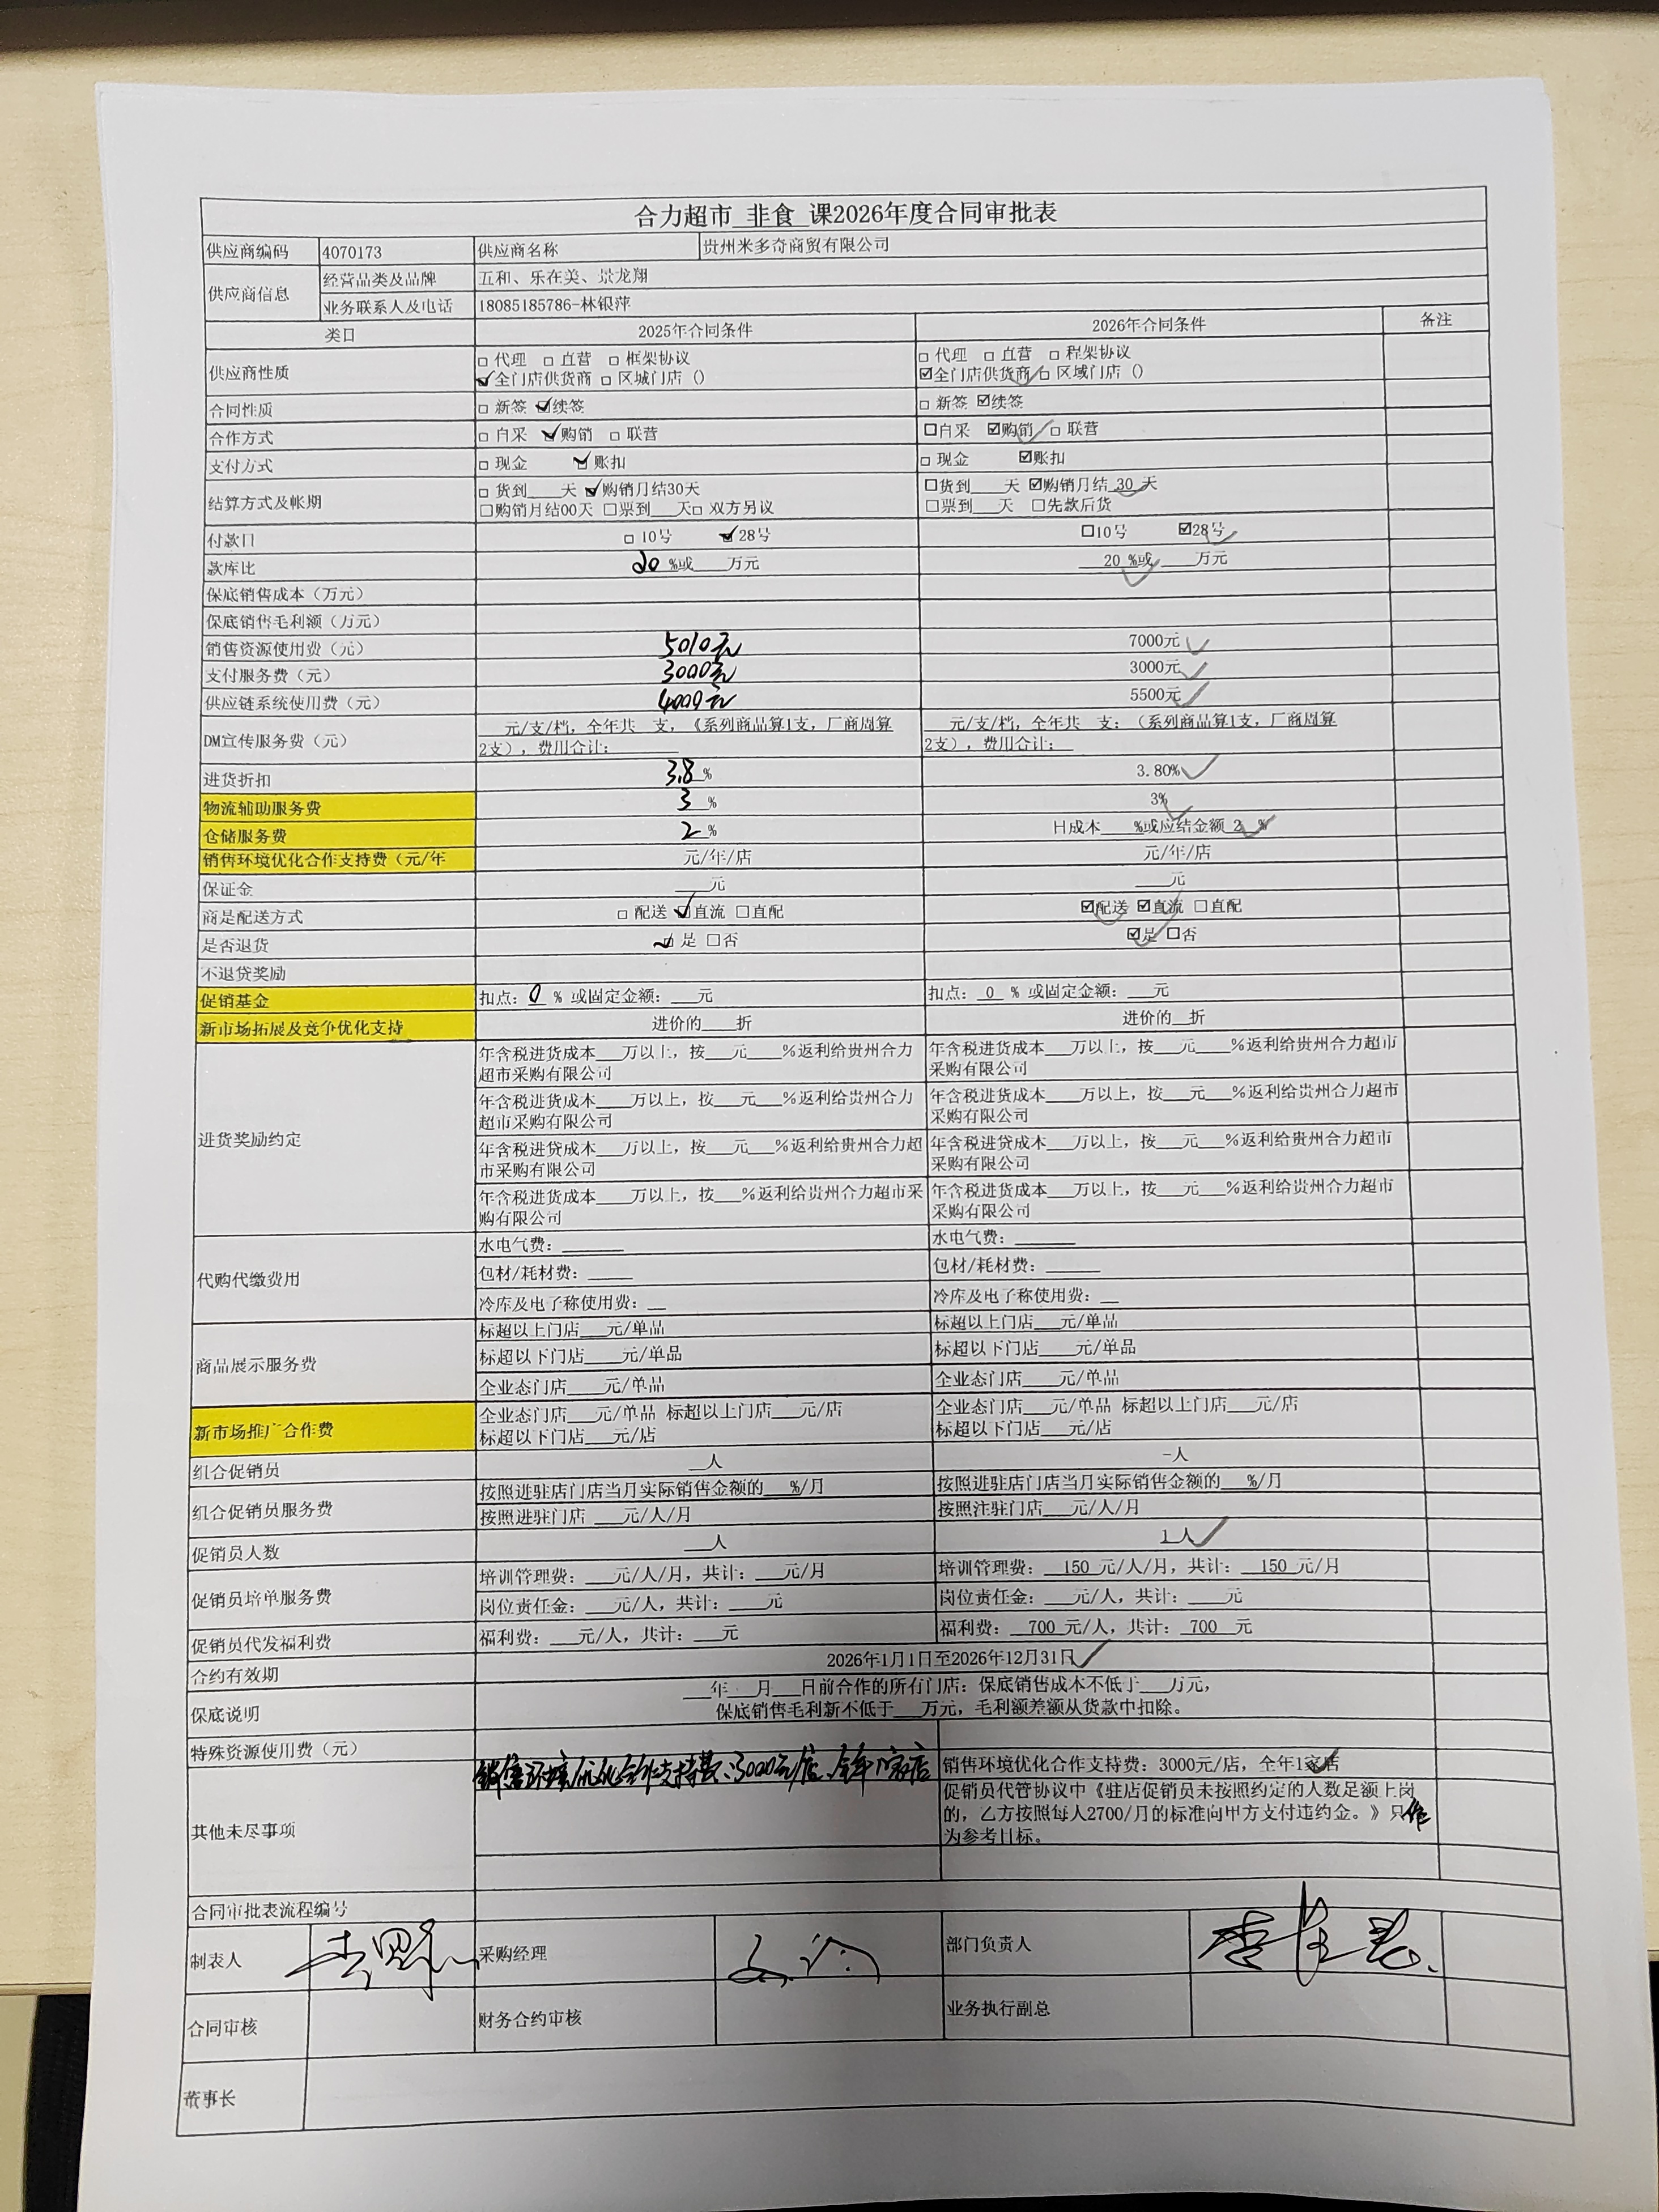 合力超市 非食 课2026年度合同审批表
供应商编码 4070173 供应商名称 贵州米多奇商贸有限公司
供应商信息 经营品类及品牌 五和、乐在美、景龙翔
业务联系人及电话 18085185786-林银萍
类目 2025年合同条件 2026年合同条件 备注
供应商性质 □ 代理 □ 直营 □ 框架协议 □ 代理 □ 直营 □ 程架协议
☑全门店供货商 □ 区城门店 () ☑全门店供货商 □ 区域门店 ()
合同性质 □ 新签 ☑续签 □ 新签 ☑续签
合作方式 □ 自采 ☑购销 □ 联营 □自采 ☑购销 □ 联营
支付方式 □ 现金 ☑账扣 □ 现金 ☑账扣
结算方式及帐期 □ 货到___天 ☑购销月结30天 □货到___天 ☑购销月结 30 天
□购销月结00天 □票到___天□ 双方另议 □票到___天 □先款后货
付款日 □ 10号 ☑28号 □10号 ☑28号
款库比 20 %或___万元 20 %或___万元
保底销售成本（万元）
保底销售毛利额（万元）
销售资源使用费（元） 5010元 7000元
支付服务费（元） 3000元 3000元
供应链系统使用费（元） 4000元 5500元
DM宣传服务费（元） 元/支/档，全年共 支，《系列商品算1支，厂商周算 元/支/档，全年共 支；（系列商品算1支，厂商周算
2支），费用合计： 2支），费用合计：
进货折扣 3.8 % 3.80%
物流辅助服务费 3 % 3%
仓储服务费 2 % 日成本___%或应结金额 2 %
销售环境优化合作支持费（元/年 元/年/店 元/年/店
保证金 ___元 ___元
商是配送方式 □ 配送 ☑直流 □直配 ☑配送 ☑直流 □直配
是否退货 ☑ 是 □否 ☑是 □否
不退贷奖励
促销基金 扣点：0 % 或固定金额：___元 扣点：0 % 或固定金额：___元
新市场拓展及竞争优化支持 进价的___折 进价的__折
进货奖励约定 年含税进货成本___万以上，按___元____%返利给贵州合力 年含税进货成本___万以上，按___元____%返利给贵州合力超市
超市采购有限公司 采购有限公司
年含税进货成本____万以上，按___元___%返利给贵州合力 年含税进货成本____万以上，按___元___%返利给贵州合力超市
超市采购有限公司 采购有限公司
年含税进贷成本___万以上，按___元___%返利给贵州合力超 年含税进贷成本___万以上，按___元___%返利给贵州合力超市
市采购有限公司 采购有限公司
年含税进货成本____万以上，按___%返利给贵州合力超市采 年含税进货成本___万以上，按___元___%返利给贵州合力超市
购有限公司 采购有限公司
代购代缴费用 水电气费：______ 水电气费：______
包材/耗材费：____ 包材/耗材费：_____
冷库及电子称使用费：__ 冷库及电子称使用费：__
商品展示服务费 标超以上门店___元/单品 标超以上门店___元/单品
标超以下门店____元/单品 标超以下门店____元/单品
企业态门店____元/单品 企业态门店____元/单品
新市场推广合作费 企业态门店___元/单品 标超以上门店___元/店 企业态门店___元/单品 标超以上门店___元/店
标超以下门店___元/店 标超以下门店___元/店
组合促销员 ___人 -人
组合促销员服务费 按照进驻店门店当月实际销售金额的___%/月 按照进驻店门店当月实际销售金额的___%/月
按照进驻门店 ___元/人/月 按照注驻门店___元/人/月
促销员人数 ___人 1人
促销员培单服务费 培训管理费：___元/人/月，共计：___元/月 培训管理费：150 元/人/月，共计：150 元/月
岗位责任金：___元/人，共计：____元 岗位责任金：___元/人，共计：____元
促销员代发福利费 福利费：___元/人，共计：___元 福利费：700 元/人，共计：700 元
合约有效期 2026年1月1日至2026年12月31日
保底说明 ___年___月___日前合作的所有门店：保底销售成本不低于___万元，
保底销售毛利新不低于___万元，毛利额差额从货款中扣除。
特殊资源使用费（元）
其他未尽事项 销售环境优化合作支持费：3000元/店，全年1家店 销售环境优化合作支持费：3000元/店，全年1家店
促销员代管协议中《驻店促销员未按照约定的人数足额上岗
的，乙方按照每人2700/月的标准向甲方支付违约金。》只作
为参考目标。
合同审批表流程编号
制表人 采购经理 部门负责人
合同审核 财务合约审核 业务执行副总
董事长